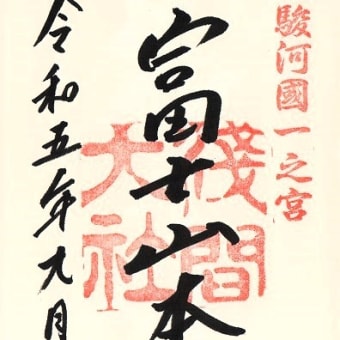 駿河國一之宮
富士山本
淺間
大社
令和五年九月